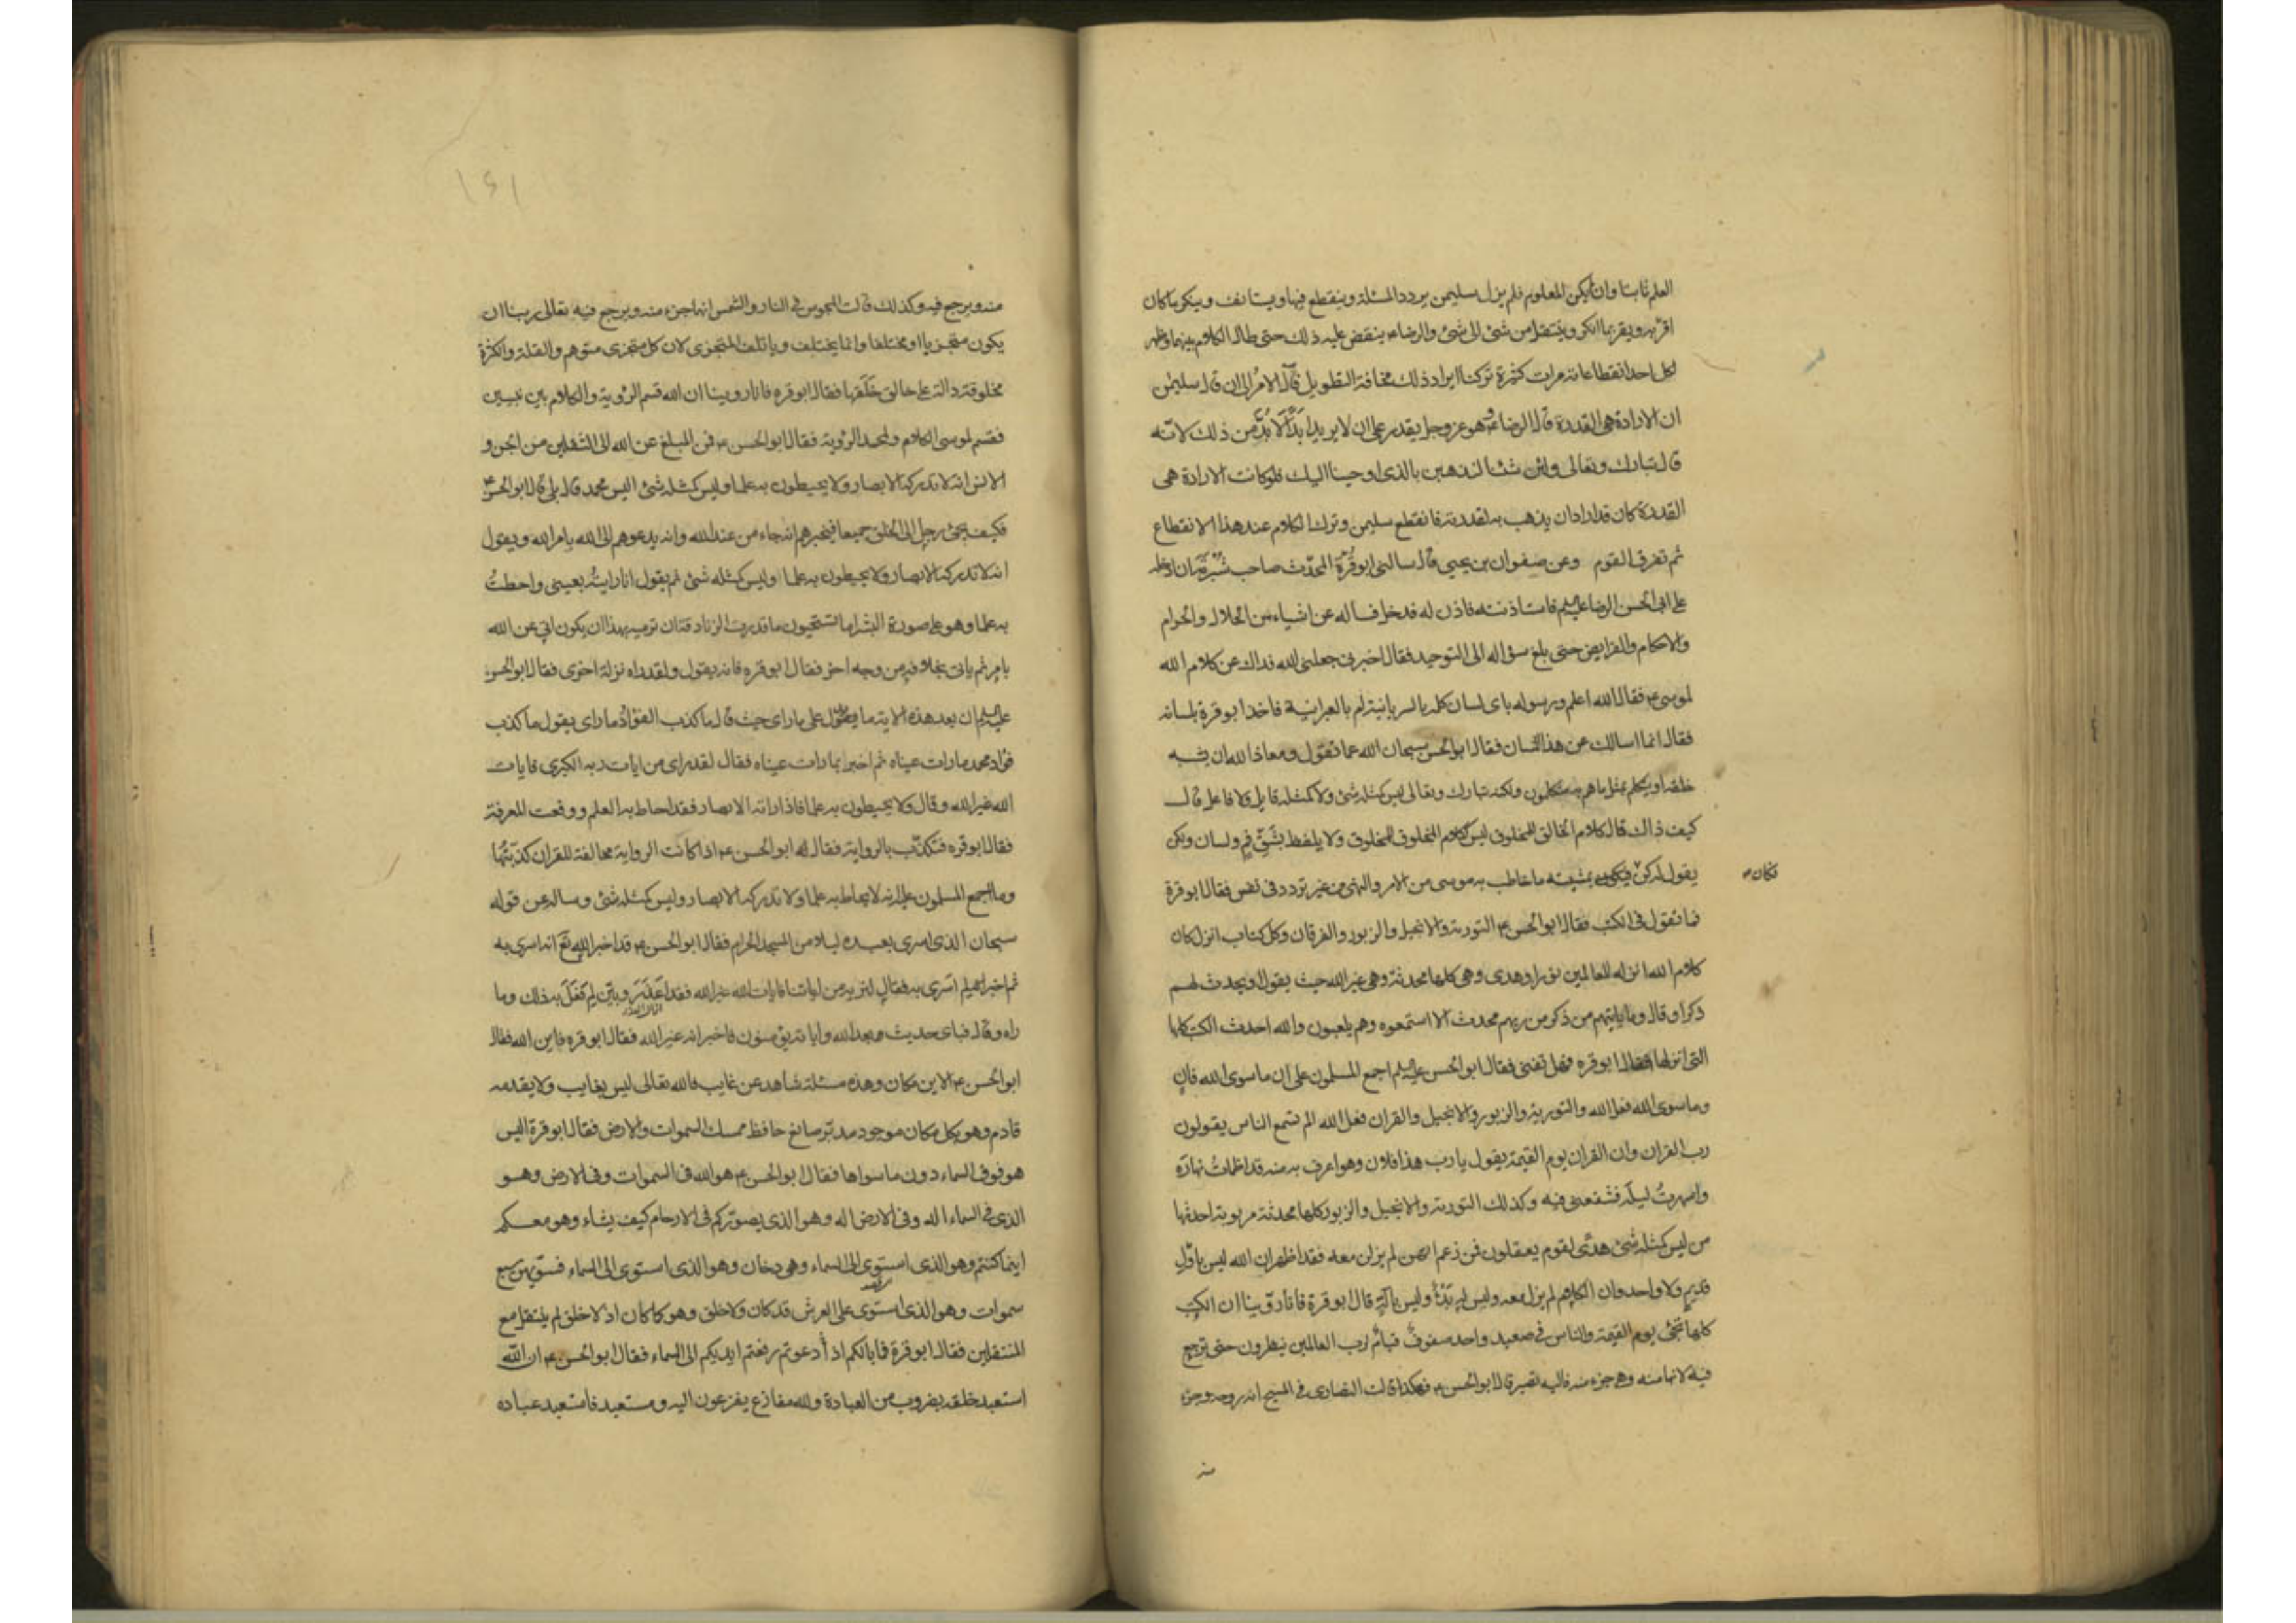 العلم ثابتا وان لم يكن المعلوم فلم يزل سليمن يردد المسئلة وينقطع فيها ويستانف وينكر ما كان
اقر به ويقر بما انكر وينتقل من شئ الى شئ والرضا ع ينقض عليه ذلك حتى طال الكلام بينهما وظهر
لكل احد انقطاعه مرات كثيرة تركنا ايراد ذلك مخافة التطويل فآل الامر الى ان قال سليمن
ان الارادة هى القدرة قال الرضا ع وهو عز وجل يقدر على ان لا يريد ابدا لا بد من ذلك لانه
قال تبارك وتعالى ولئن شئنا لنذهبن بالذى اوحينا اليك فلو كانت الارادة هى
القدرة كان قد اراد ان يذهب به لقدرته فانقطع سليمن وترك الكلام عند هذا الانقطاع
ثم تفرق القوم وعن صفوان بن يحيى قال سالنى ابو قرة المحدث صاحب شبرمة ان ادخله
على ابى الحسن الرضا عليه السلم فاستاذنته فاذن له فدخل فساله عن اشياء من الحلال والحرام
والاحكام والفرايض حتى بلغ سؤاله الى التوحيد فقال اخبرنى جعلنى الله فداك عن كلام الله
لموسى ع فقال الله اعلم ورسوله باى لسان كلمه بالسريانية ام بالعبرانية فاخذ ابو قرة بلسانه
فقال انما اسالك عن هذا اللسان فقال ابو الحسن سبحان الله عما تقول ومعاذ الله ان يشبه
خلقه او يتكلم بمثل ما هم به متكلمون ولكنه تبارك وتعالى ليس كمثله شئ ولا كمثله قايل ولا فاعل قال
كيف ذاك قال كلام الخالق لمخلوق ليس ككلام المخلوق لمخلوق ولا يلفظ بشق فم ولسان ولكن
يقول له كن فيكون بمشيته ما خاطب به موسى من الامر والنهى من غير تردد فى نفس فقال ابو قرة
فكان
فما تقول فى الكتب فقال ابو الحسن ع التورية والانجيل والزبور والفرقان وكل كتاب انزل كان
كلام الله انزله للعالمين نورا وهدى وهى كلها محدثة وهى غير الله حيث يقول او يحدث لهم
ذكرا وقال وما ياتيهم من ذكر من ربهم محدث الا استمعوه وهم يلعبون والله احدث الكتب كلها
التى انزلها فقال ابو قره فهل تفنى فقال ابو الحسن عليه السلم اجمع المسلمون على ان ما سوى الله فان
وما سوى الله فعل الله والتورية والزبور والانجيل والقران فعل الله الم تسمع الناس يقولون
رب القران وان القران يوم القيمة يقول يا رب هذا فلان وهو اعرف به منه قد اظمات نهاره
واسهرت ليله فشفعنى فيه وكذلك التورية والانجيل والزبور كلها محدثة مربوبة احدثها
من ليس كمثله شئ هدى لقوم يعقلون فمن زعم انهن لم يزلن معه فقد اظهر ان الله ليس باول
قديم ولا واحد وان الكلام لم يزل معه وليس له بدأ وليس باله قال ابو قرة فانا روينا ان الكتب
كلها تجئ يوم القيمة والناس فى صعيد واحد صفوف قيام لرب العالمين ينظرون حتى ترجع
فيه لانها منه وهى جزء منه فاليه تصير قال ابو الحسن ع فهكذا قالت النصارى فى المسيح انه روحه وجزء
منه
١٤١
منه ويرجع فيه وكذلك قالت المجوس فى النار والشمس انهما جزء منه ويرجع فيه تعالى ربنا ان
يكون متجزيا او مختلفا وانما يختلف وياتلف المتجزى لان كل متجزى متوهم والقلة والكثرة
مخلوقة دالة على خالق خلقها فقال ابو قره فانا روينا ان الله قسم الرؤية والكلام بين نبيين
فقسم لموسى الكلام ولمحمد الرؤية فقال ابو الحسن ع فمن المبلغ عن الله الى الثقلين من الجن و
الانس انه لا تدركه الابصار ولا يحيطون به علما وليس كمثله شئ اليس محمد قال بلى قال ابو الحسن ع
فكيف يجئ رجل الى الخلق جميعا فيخبرهم انه جاء من عند الله وانه يدعوهم الى الله بامر الله ويقول
انه لا تدركه الابصار ولا يحيطون به علما وليس كمثله شئ ثم يقول انا رايته بعينى واحطت
به علما وهو على صورة البشر اما تستحيون ما قدرت الزنادقة ان ترميه بهذا ان يكون اتى عن الله
بامر ثم ياتى بخلافه من وجه اخر فقال ابو قره فانه يقول ولقد راه نزلة اخرى فقال ابو الحسن
عليه السلم ان بعد هذه الاية ما يدل على ما راى حيث قال ما كذب الفؤاد ما راى يقول ما كذب
فؤاد محمد ما رات عيناه ثم اخبر بما رات عيناه فقال لقد راى من ايات ربه الكبرى فايات
الله غير الله وقال ولا يحيطون به علما فاذا راته الابصار فقد احاط به العلم ووقعت المعرفة
فقال ابو قره فتكذب بالرواية فقال له ابو الحسن ع اذا كانت الرواية مخالفة للقران كذبتها
وما اجمع المسلمون عليه انه لا يحاط به علما ولا تدركه الابصار وليس كمثله شئ وساله عن قوله
سبحان الذى اسرى بعبده ليلا من المسجد الحرام فقال ابو الحسن ع قد اخبر الله تع انه اسرى به
ثم اخبر انه لم اسرى به فقال لنريه من اياتنا فايات الله غير الله فقد اعذر وبين لم فعل به ذلك وما
راه وقال فباى حديث بعد الله واياته يؤمنون فاخبر انه غير الله فقال ابو قره فاين الله فقال
ابو الحسن ع الاين مكان وهذه مسئلة شاهد عن غايب فالله تعالى ليس بغايب ولا يقدمه
قادم وهو بكل مكان موجود مدبر صانع حافظ ممسك السموات والارض فقال ابو قرة اليس
هو فوق السماء دون ما سواها فقال ابو الحسن ع هو الله فى السموات وفى الارض وهو
الذى فى السماء اله وفى الارض اله وهو الذى يصوركم فى الارحام كيف يشاء وهو معكم
اينما كنتم وهو الذى استوى الى السماء وهى دخان وهو الذى استوى الى السماء فسويهن سبع
سموات وهو الذى استوى على العرش قد كان ولا خلق وهو كما كان اذ لا خلق لم ينتقل مع
المنتقلين فقال ابو قرة فما بالكم اذا دعوتم رفعتم ايديكم الى السماء فقال ابو الحسن ع ان الله
استعبد خلقه بضروب من العبادة ولله مفازع يفزعون اليه ومستعبد فاستعبد عباده